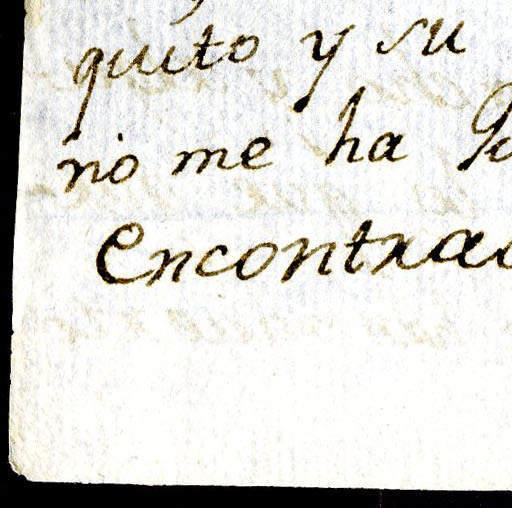 quito y su
no me ha
encontra